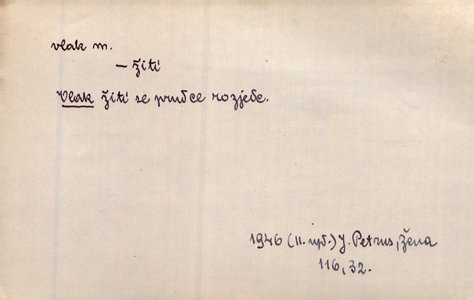 vlak m.
– žití
Vlak žití se prudce rozjede.
1946 (II. vyd.) J. Petrus, Žena
116, 32.